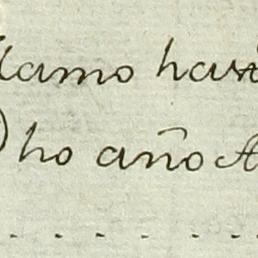 llamo hav
Dho año A